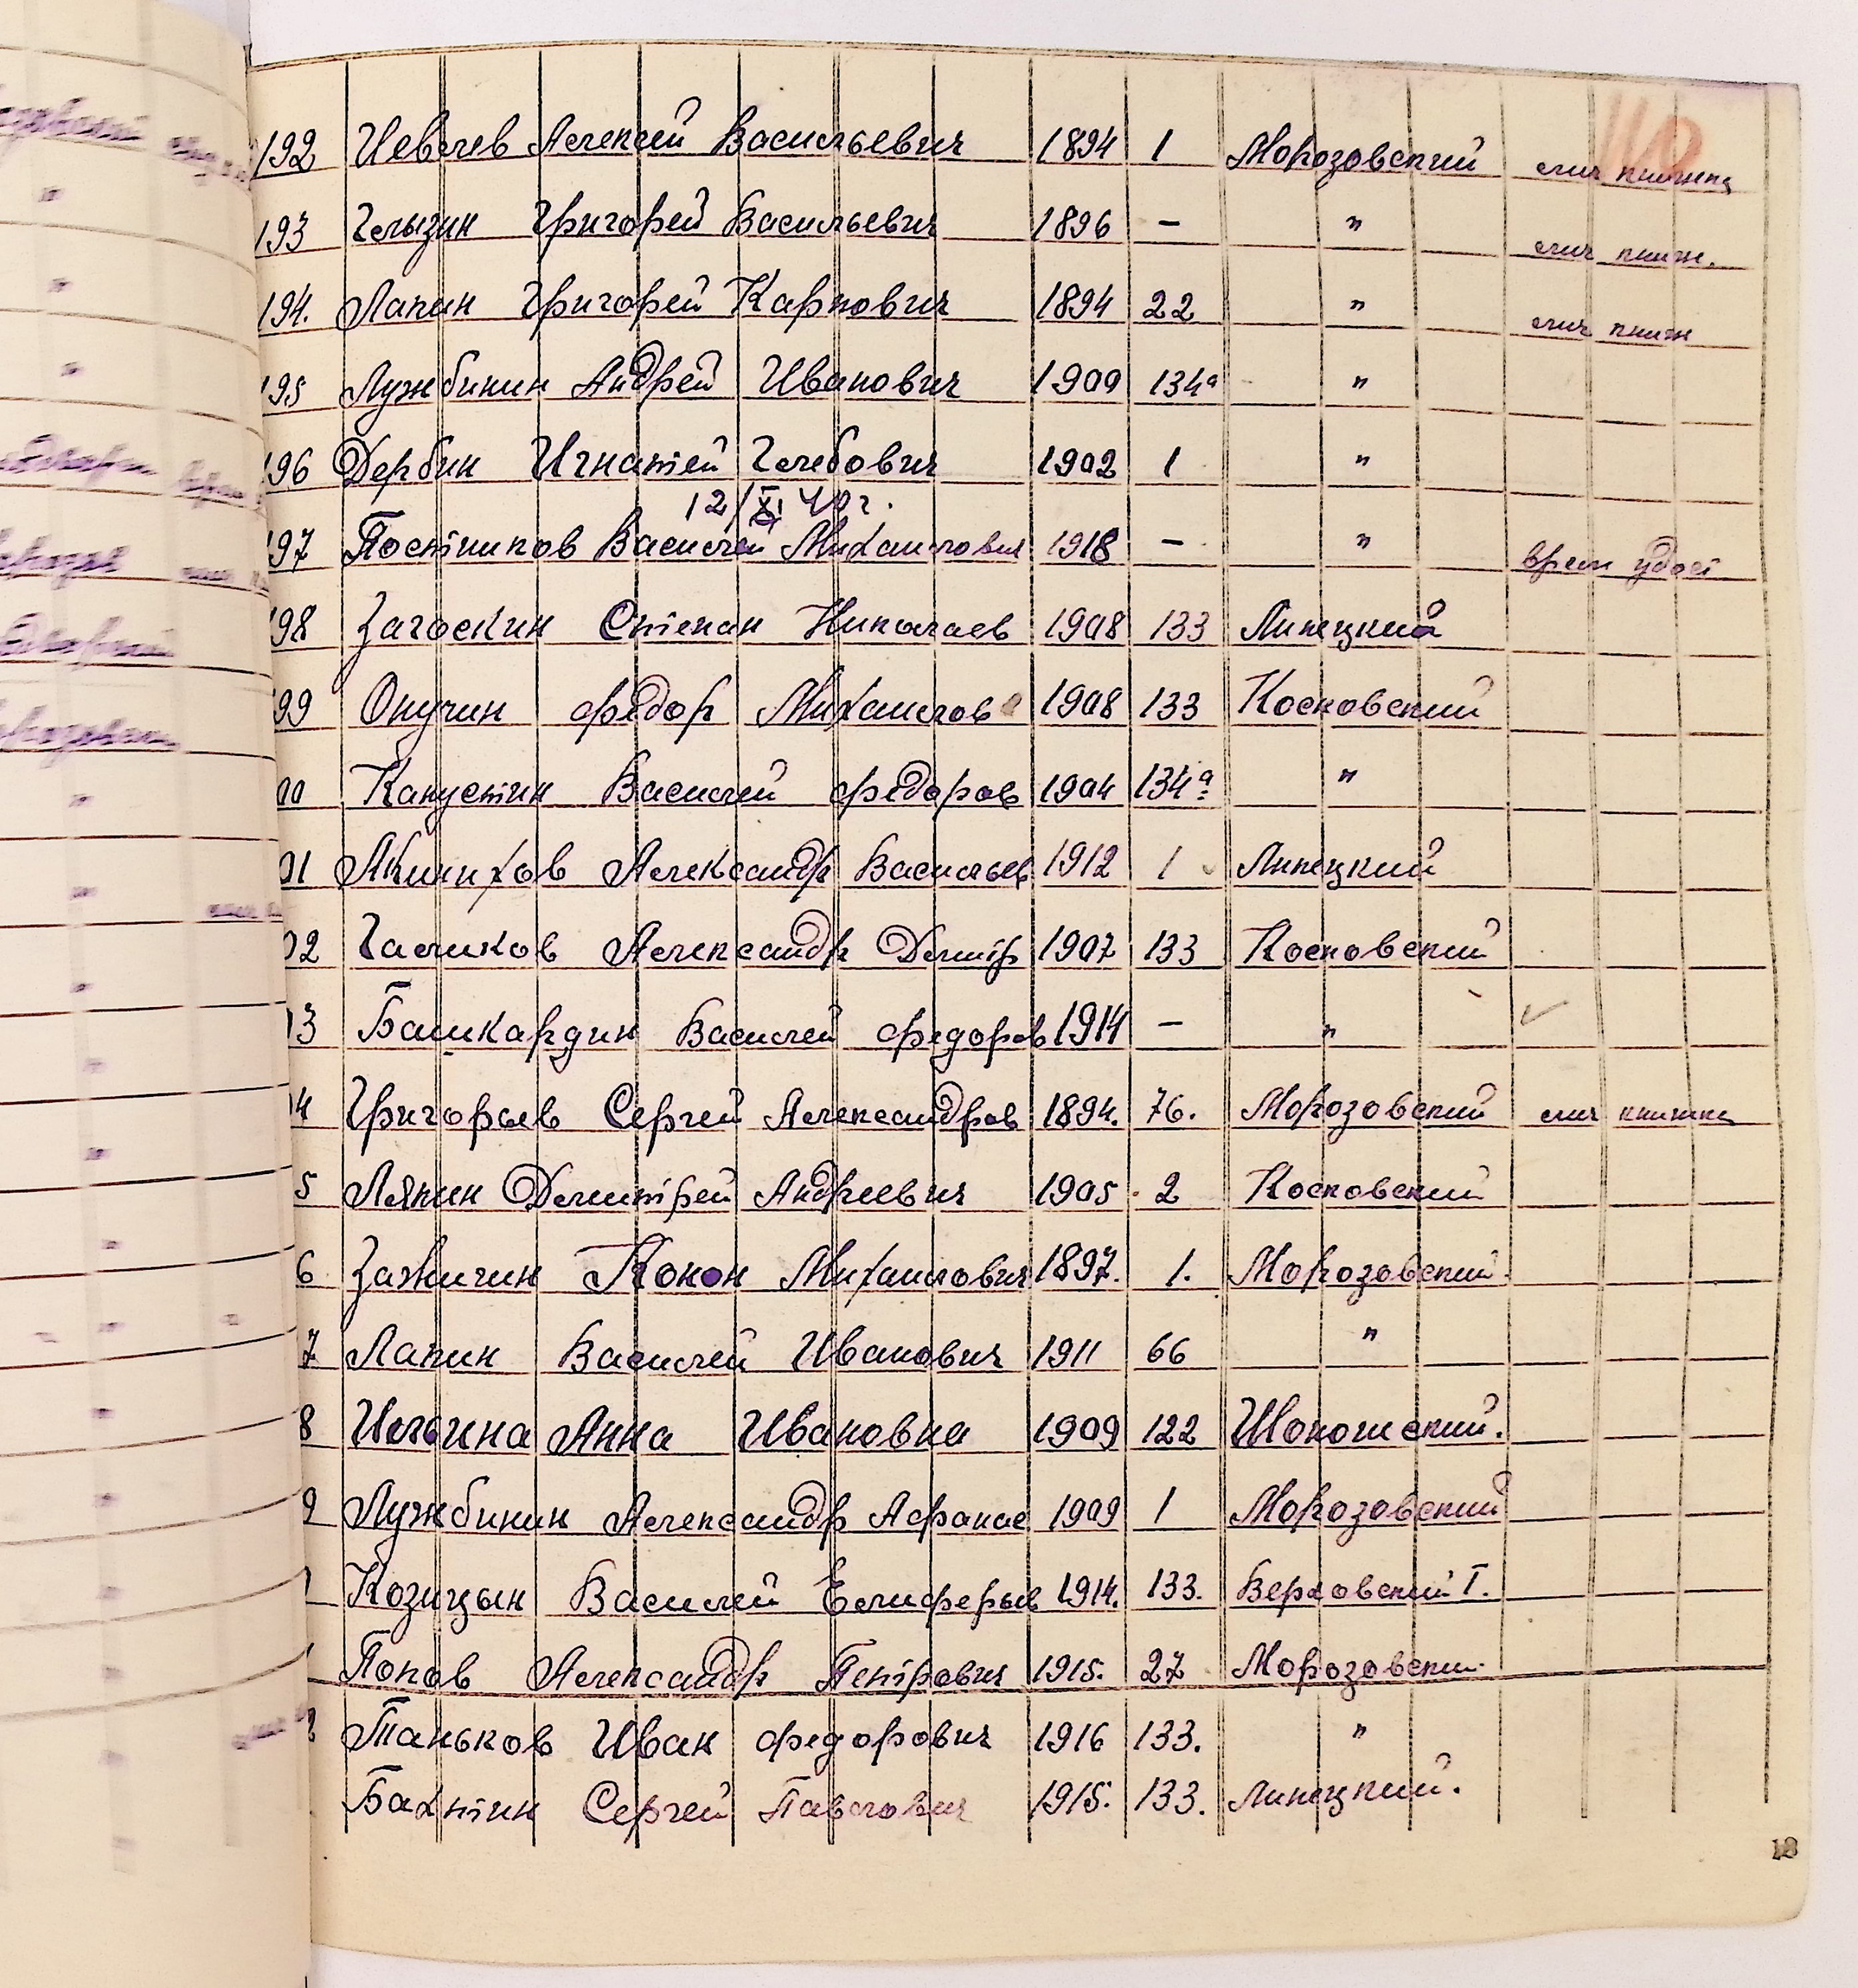 110
192 Иевлев Алексей Васильевич 1894 1 Морозовский лич книжка
193 Голызин Григорей Васильевич 1896 – " лич книж.
194. Лапин Григорей Карпович 1894 22 " лич книж
195 Лужбинин Андрей Иванович 1909 134а "
196 Дербин Игнатей Глебович 1902 1 "
12/XI 40 г.
197 Постников Василей Михаилович 1918 – " врем удост
98 Загоскин Степан Николаев 1908 133 Липецкий
99 Окулин Федор Михаилов 1908 133 Косковский
00 Капустин Василей Федоров 1904 134а "
01 Акинихов Александр Васильев 1912 1 Липецкий
02 Галиков Александр Дмитр 1907 133 Косковский
03 Башкардин Василей Федоров 1914 – "
04 Григорьев Сергей Александров 1894. 76. Морозовский лич книжка
5 Ляпин Дмитрей Андреевич 1905 2 Косковский
6 Зажигин Конон Михаилович 1897. 1. Морозовский
7 Лапин Василей Иванович 1911 66 "
8 Ильина Анна Ивановна 1909 122 Шоношский.
9 Лужбинин Александр Афанас 1909 1 Морозовский
Козицын Василей Елиферьев 1914. 133. Верховский I.
Попов Александр Петрович 1915. 27 Морозовский
Таньков Иван Федорович 1916 133. "
Бахтин Сергей Павлович 1915. 133. Липецкий.
18